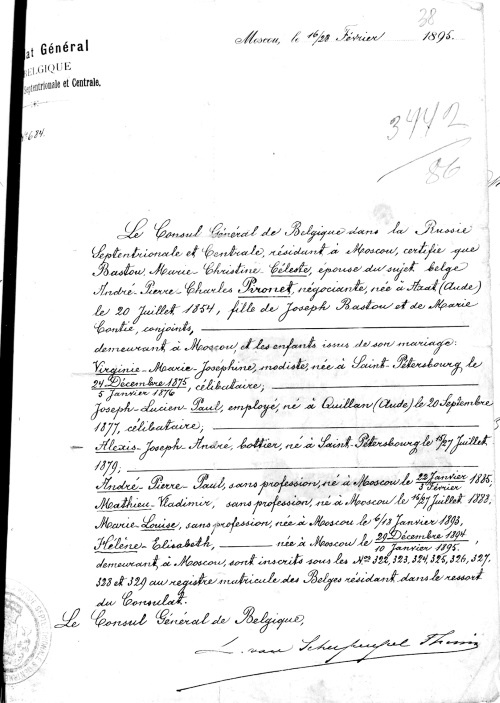 38
Moscou, le 16/28 Février 1895.
at Général
BELGIQUE
Septentrionale et Centrale.
No 684.
3442
86
Le Consul Général de Belgique dans la Russie
Septentrionale et Centrale, résidant à Moscou, certifie que
Bastou, Marie-Christine-Céleste, épouse du sujet belge
André-Pierre-Charles Pironet, négociante, née à Axat (Aude)
le 20 Juillet 1854, fille de Joseph Bastou et de Marie
Contié, conjoints,
demeurant à Moscou, et les enfants issus de son mariage:
Virginie-Marie-Josephine, modiste, née à Saint-Pétersbourg, le
24 Décembre 1875
5 Janvier 1876, célibataire;
Joseph-Lucien-Paul, employé, né à Quillan (Aude) le 20 Septembre
1877, célibataire;
Alexis-Joseph-André, bottier, né à Saint-Pétersbourg le 15/27 Juillet
1879;
André-Pierre-Paul, sans profession, né à Moscou le 22 Janvier/3 Février 1885,
Mathieu-Vladimir, sans profession, né à Moscou le 15/27 Juillet 1883,
Marie-Louise, sans profession, née à Moscou le 6/18 Janvier 1893,
Hélène-Elisabeth, née à Moscou le 29 Décembre 1894
10 Janvier 1895.
demeurant à Moscou, sont inscrits sous les Nos 322, 323, 324, 325, 326, 327,
328 et 329 au registre matricule des Belges résidant dans le ressort
du Consulat.
Le Consul Général de Belgique,
L. van